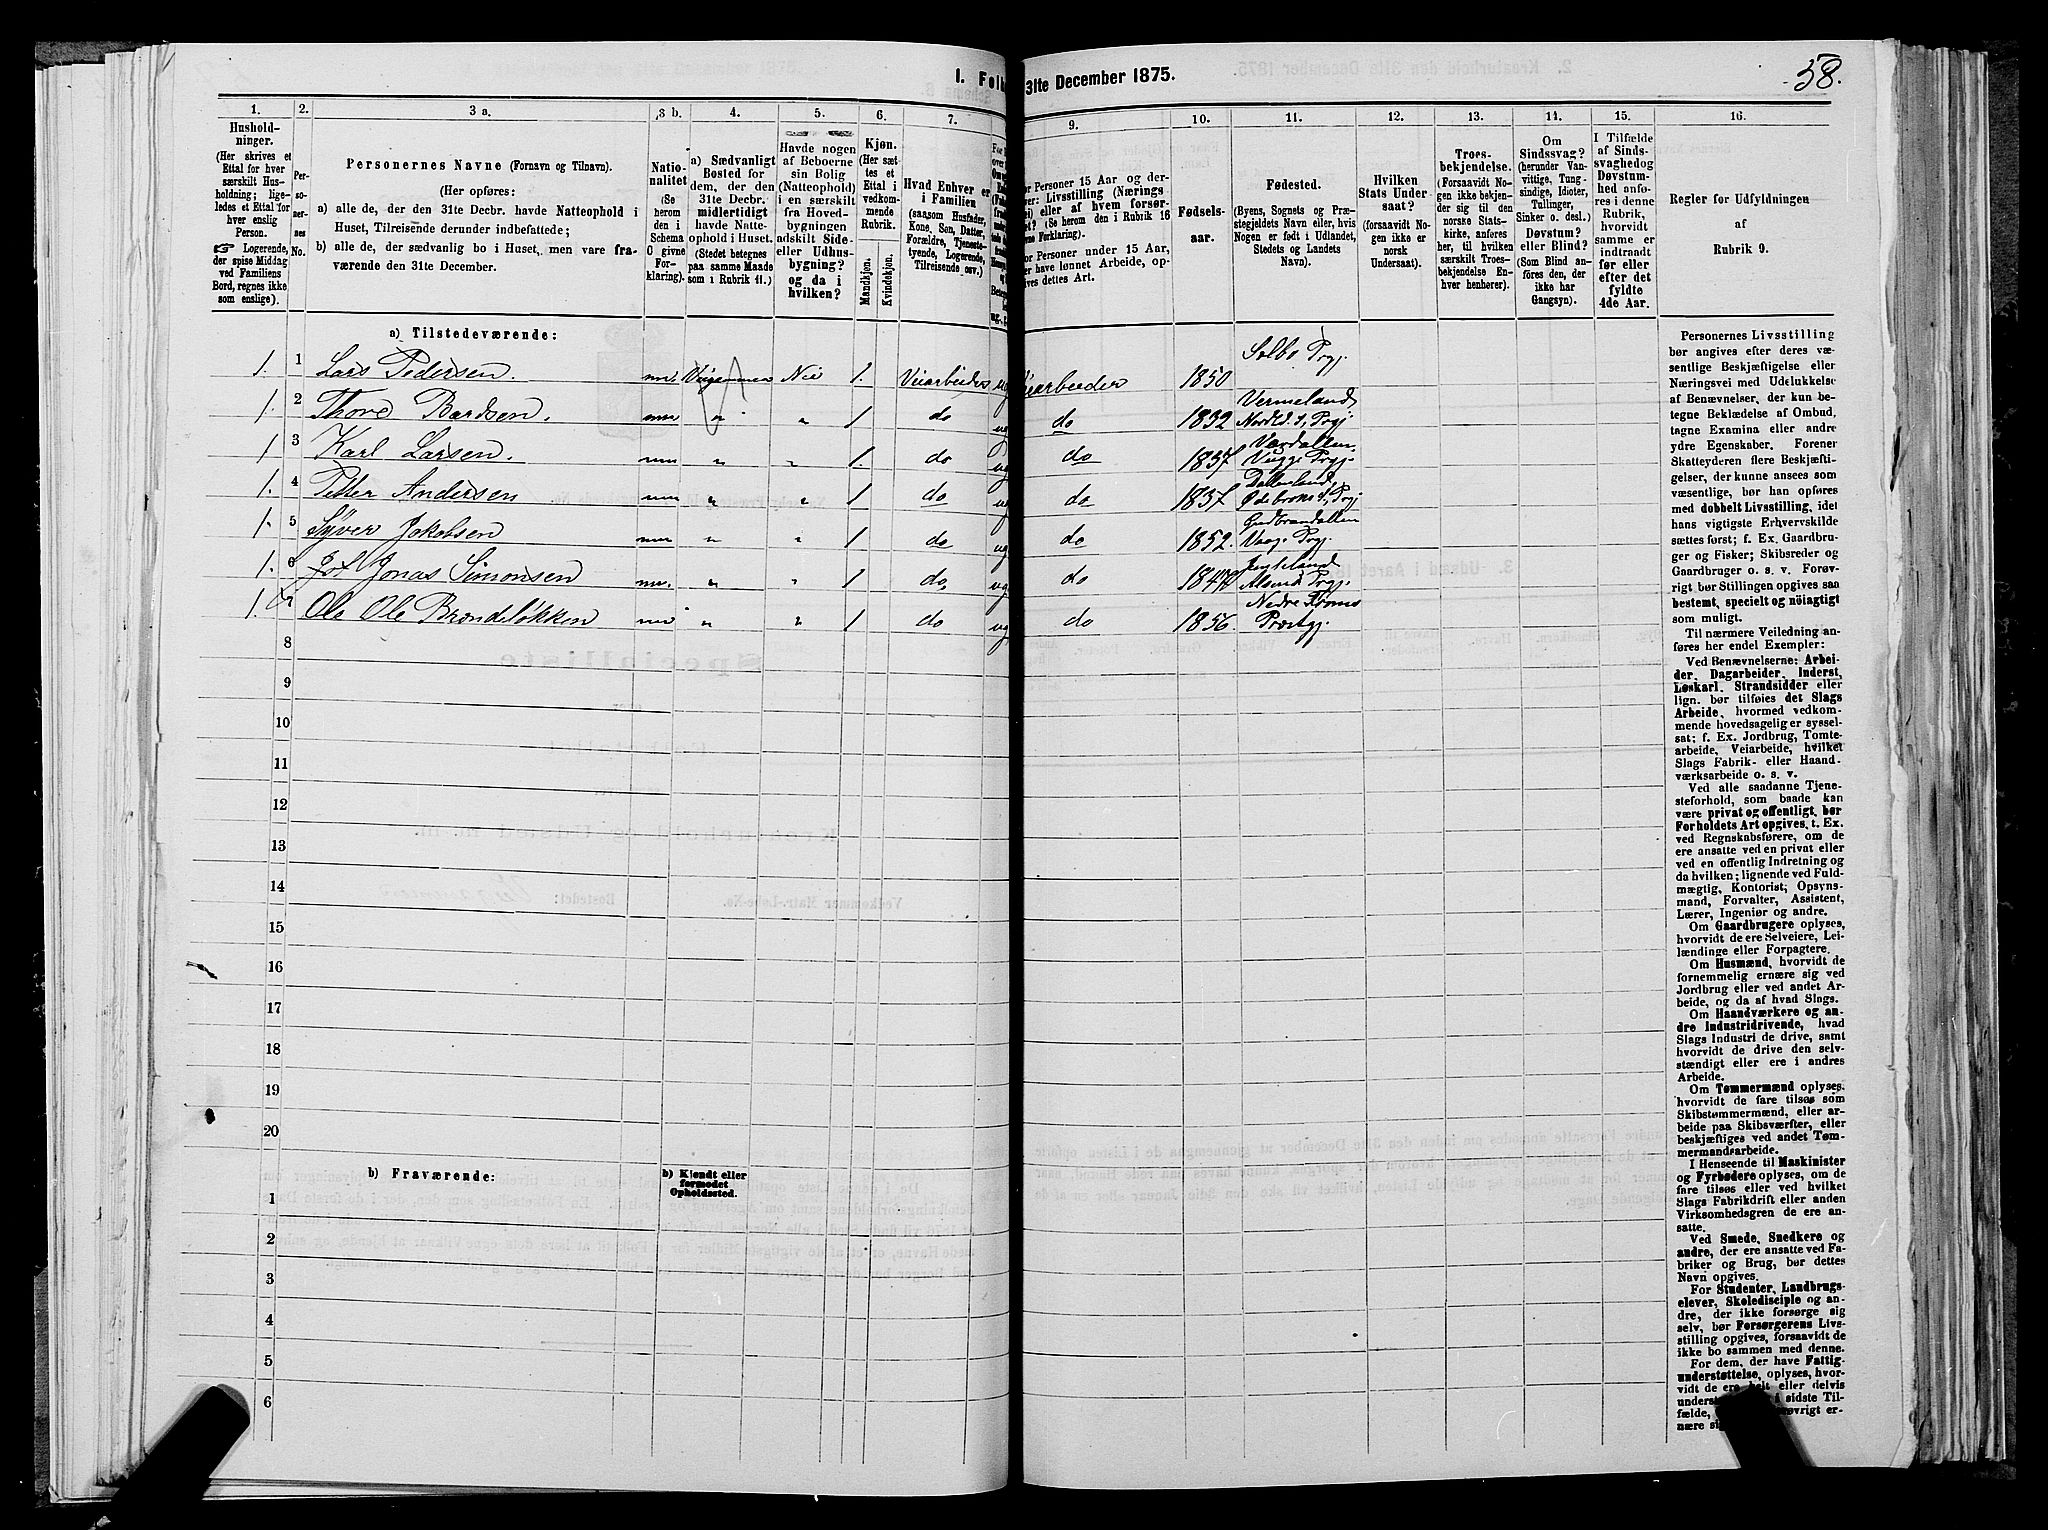 58.
1. Folk
31te December 1875.
1.
2.
3 a.
3 b.
4.
5.
6.
7.
9.
10.
11.
12.
13.
14.
15.
16.
Hushold-
ninger.
(Her skrives et
Ettal for hver
særskilt Hus-
holdning; lige-
ledes et Ettal for
hver enslig
Person.
☞ Logerende,
der spise Middag
ved Familiens
Bord, regnes ikke
som enslige).
Per-
so-
ner-
nes
No.
Personernes Navne (Fornavn og Tilnavn).
(Her opføres:
a) alle de, der den 31te Decbr. havde Natteophold i
Huset, Tilreisende derunder indbefattede;
b) alle de, der sædvanlig bo i Huset, men vare fra-
værende den 31te December.
Natio-
nalitet
(Se
herom
den i
Schema
O givne
For-
klaring).
a) Sædvanligt
Bosted for
dem, der den
31te Decbr.
midlertidigt
havde Natte-
ophold i Huset.
(Stedet betegnes
paa samme Maade
som i Rubrik 11.)
Havde nogen
af Beboerne
sin Bolig
(Natteophold)
i en særskilt
fra Hoved-
bygningen
adskilt Side-
eller Udhus-
bygning?
og da i
hvilken?
Kjøn.
(Her sæt-
tes et
Ettal i
vedkom-
mende
Rubrik.
Mandkjøn.
Kvindekjøn.
Hvad Enhver er
i Familien
(saasom Husfader,
Kone, Søn, Datter,
Forældre, Tjeneste-
tyende, Logerende,
Tilreisende osv.)
or Personer 15 Aar og der-
ver: Livsstilling (Nærings
ei) eller af hvem forsør-
et? (Se herom den i Rubrik 16
vne Forklaring).
or Personer under 15 Aar,
er have lønnet Arbeide, op-
ives dettes Art.
Fødsels-
aar.
Fødested.
(Byens, Sognets og Præ-
stegjeldets Navn eller, hvis
Nogen er født i Udlandet,
Stedets og Landets
Navn).
Hvilken
Stats Under-
saat?
(forsaavidt No-
gen ikke er
norsk
Undersaat).
Troes-
bekjendelse.
(Forsaavidt No-
gen ikke bekjen-
der sig til den
norske Stats-
kirke, anføres
her, til hvilken
særskilt Troes-
bekjendelse En-
hver henhører).
Om
Sindssvag?
(herunder Van-
vittige, Tung-
sindige, Idioter,
Tullinger,
Sinker o. desl.)
Døvstum?
eller Blind?
(Som Blind an-
føres den, der
ikke har
Gangsyn).
I Tilfælde
af Sinds-
svaghed og
Døvstum-
hed anfø-
res i denne
Rubrik,
hvorvidt
samme er
indtraadt
før eller
efter det
fyldte
4de Aar.
Regler for Udfyldningen
af
Rubrik 9.
a) Tilstedeværende:
1. 1 Lars Pedersen. nn. Nei 1. Veiarbeider ug Veiarbeider 1850 Selbo Prgj.
1. 2 Thore Bardsen. nn „ „ 1 do ug do 1832 Vermeland
1 3 Karl Larsen. nn „ „ 1. do ug do 1837
1. 4 Petter Andersen nn „ „ 1 do ug do 1837
1. 5 Syver Jakobsen nn „ „ 1 do ug do 1852. Gudbrandallen Vaage Prgj.
1. 6 Jonas Simonsen nn. „ „ 1 do ug do
1. 7 Ole Ole Brændeløkken nn „ „ 1 do ug do 1856. Præstgj.
8
9
10
11
12
13
14
15
16
17
18
19
20
b) Fraværende:
b) Kjendt eller
formodet
Opholdssted.
1
2
3
4
5
6
Personernes Livsstilling
bør angives efter deres væ-
sentlige Beskjæftigelse eller
Næringsvei med Udelukkelse
af Benævnelser, der kun be-
tegne Beklædelse af Ombud,
tagne Examina eller andre
ydre Egenskaber. Forener
Skatteyderen flere Beskjæfti-
gelser, der kunne ansees som
væsentlige, bør han opføres
med dobbelt Livsstilling, idet
hans vigtigste Erhvervskilde
sættes først; f. Ex. Gaardbru-
ger og Fisker; Skibsreder og
Gaardbruger o. s. v. Forøv-
rigt bør Stillingen opgives saa
bestemt, specielt og nøiagtigt
som muligt.
Til nærmere Veiledning an-
føres her endel Exempler:
Ved Benævnelserne: Arbei-
der, Dagarbeider, Inderst,
Løskarl, Strandsidder eller
lign. bør tilføies det Slags
Arbeide, hvormed vedkom-
mende hovedsagelig er syssel-
sat; f. Ex. Jordbrug, Tomte-
arbeide, Veiarbeide, hvilket
Slags Fabrik- eller Haand-
værksarbeide o. s. v.
Ved alle saadanne Tjene-
steforhold, som baade kan
være privat og offentligt, bør
Forholdets Art opgives, t. Ex.
ved Regnskabsførere, om de
ere ansatte ved en privat eller
ved en offentlig Indretning og
da hvilken; lignende ved Fuld-
mægtig, Kontorist; Opsyns-
mand, Forvalter, Assistent,
Lærer, Ingeniør og andre.
Om Gaardbrugere oplyses,
hvorvidt de ere Selveiere, Lei-
lændinge eller Forpagtere.
Om Husmænd, hvorvidt de
fornemmelig ernære sig ved
Jordbrug eller ved andet Ar-
beide, og da af hvad Slags.
Om Haandværkere og an-
dre Industridrivende, hvad
Slags Industri de drive, samt
hvorvidt de drive den selv-
stændigt eller ere i andres
Arbeide.
Om Tømmermænd oplyses,
hvorvidt de fare tilsøs som
Skibstømmermænd, eller ar-
beide paa Skibsværfter, eller
beskjæftiges ved andet Tøm-
mermandsarbeide.
I Henseende til Maskinister
og Fyrbødere oplyses, om de
fare tilsøs eller ved hvilket
Slags Fabrikdrift eller anden
Virksomhedsgren de ere an-
satte.
Ved Smede, Snedkere og
andre, der ere ansatte ved Fa-
briker og Brug, bør dettes
Navn opgives.
For Studenter, Landbrugs-
elever, Skoledisciple og an-
dre, der ikke forsørge sig
selv, bør Forsørgerens Livs-
stilling opgives, forsaavidt de
ikke bo sammen med denne.
For dem, der have Fattig-
understøttelse, oplyses, hvor-
vidt de ere helt eller delvis
underst i sidste Til-
fælde, øvrigt er-
nære si